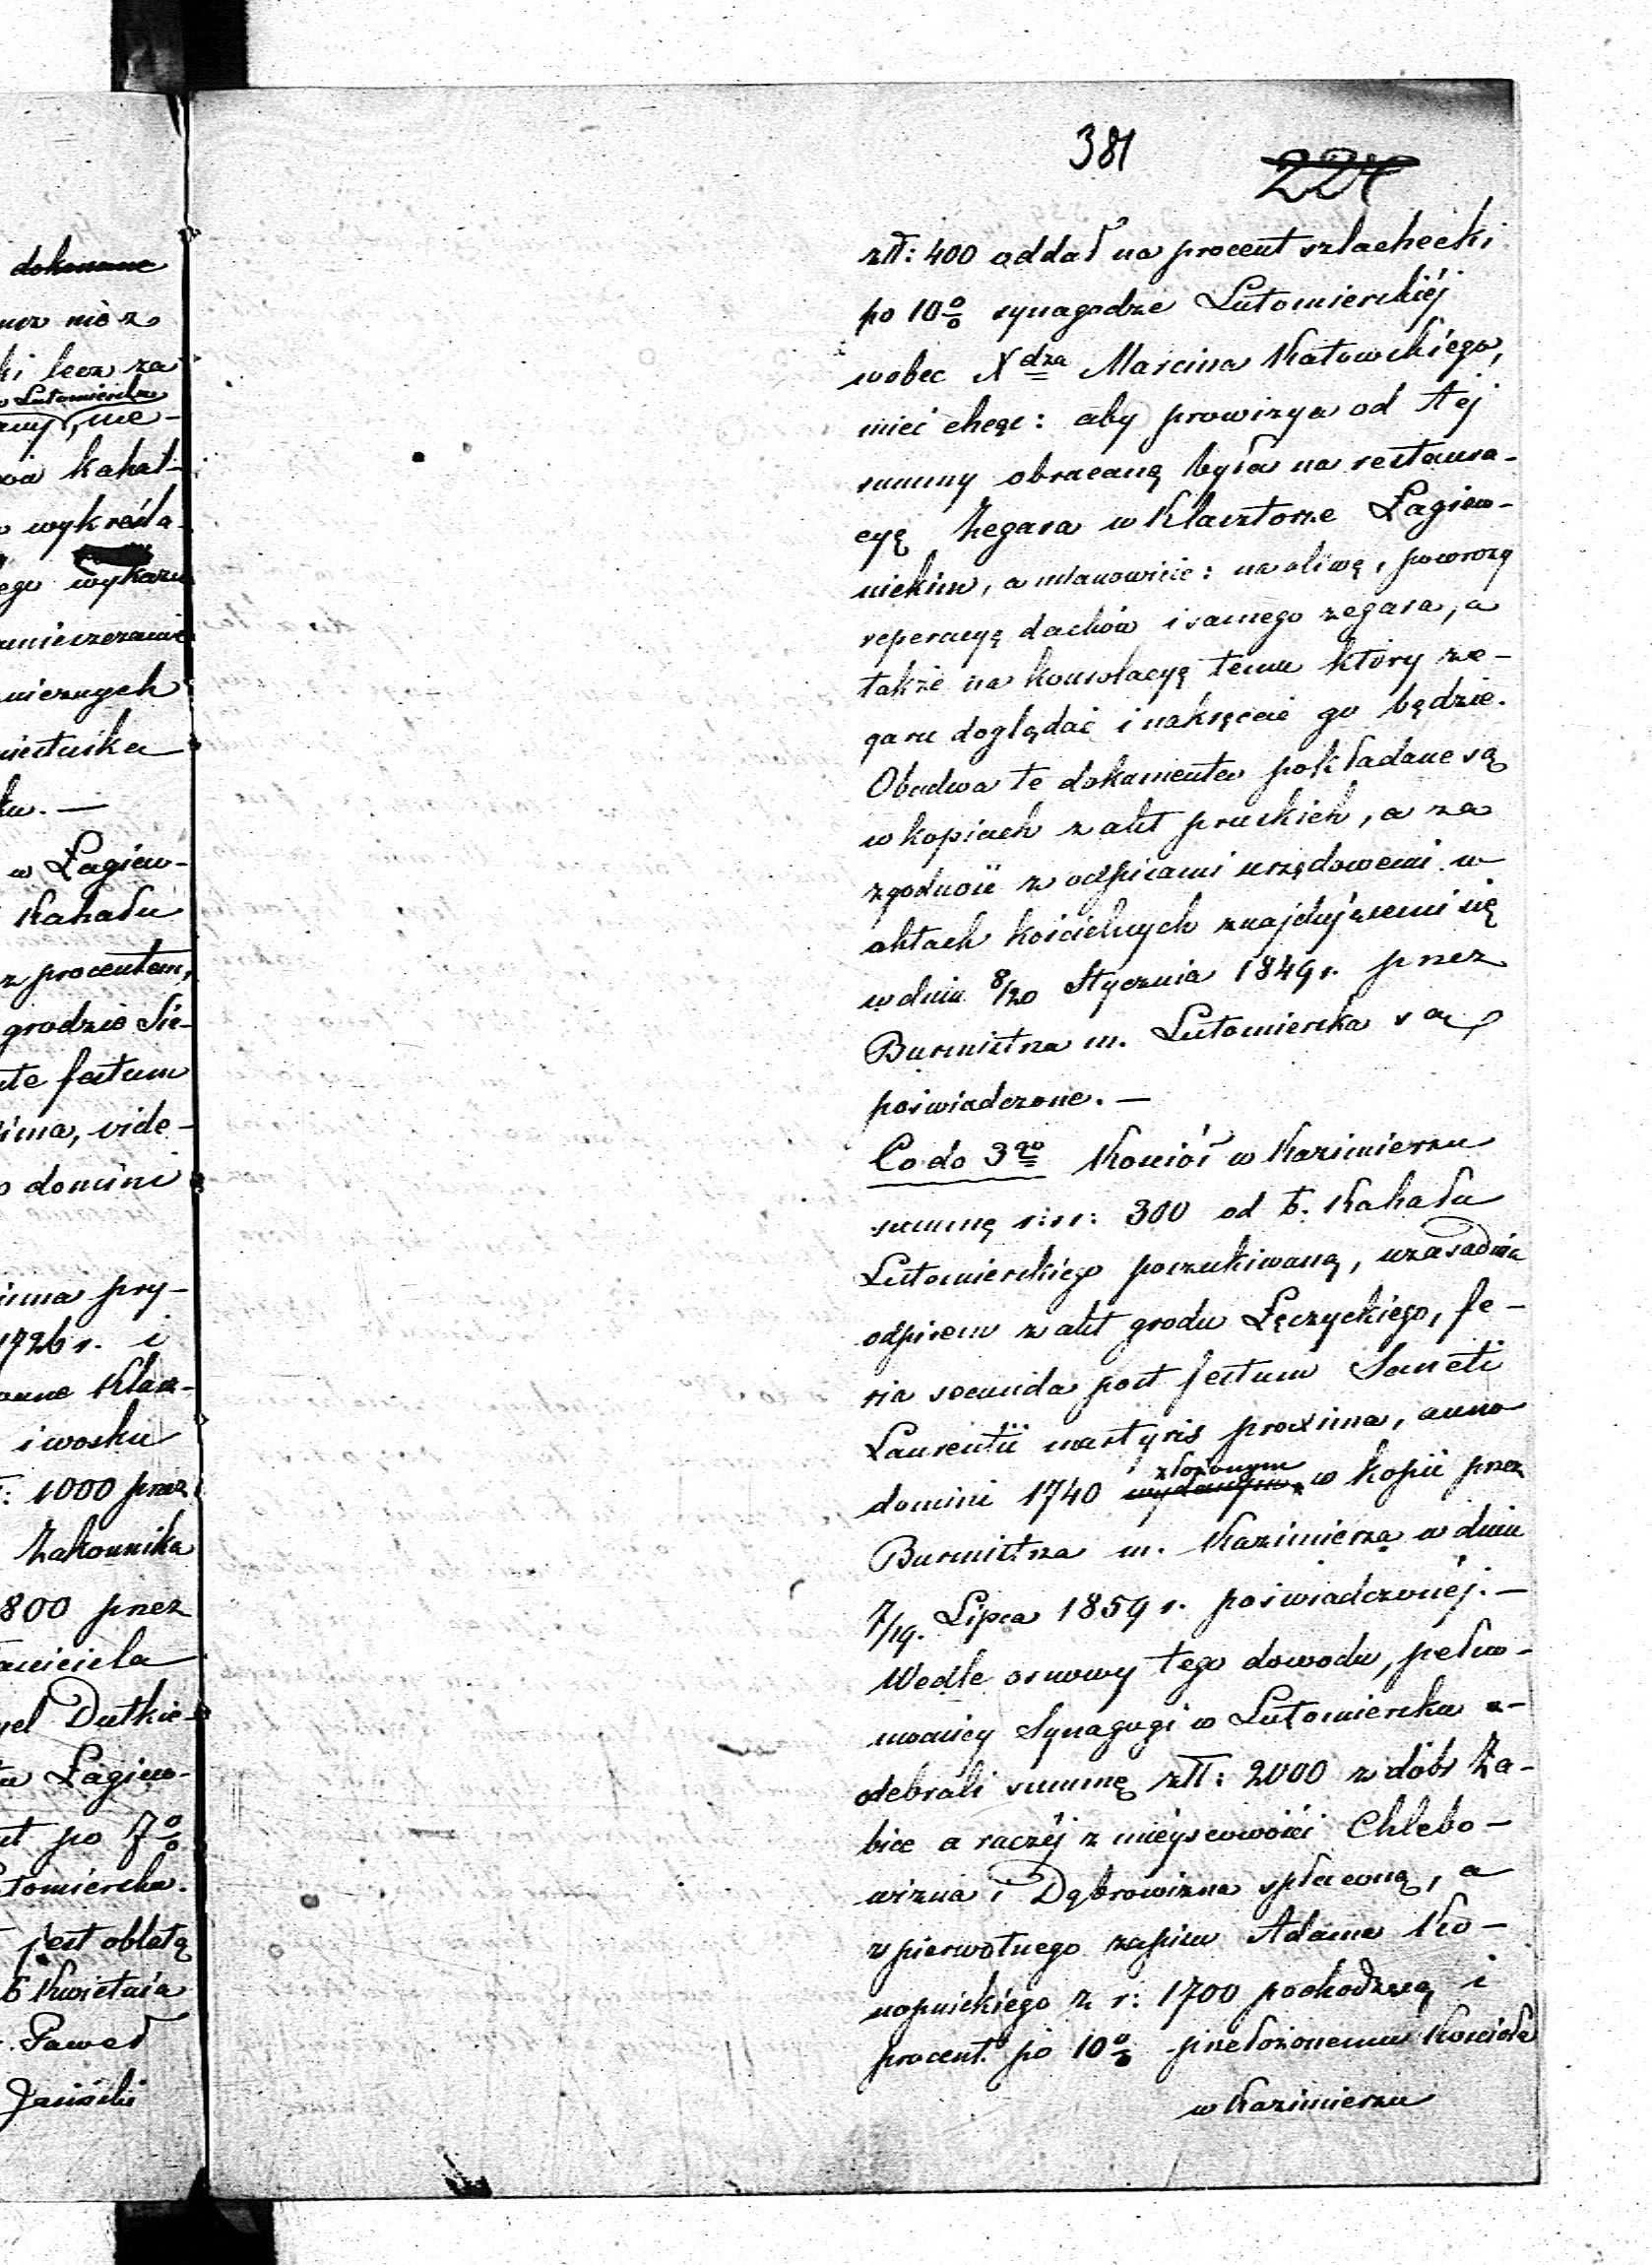 dokonane
nie z
ki lecz za
w Lutomiersku
me-
kahal-
wykreśla-
wykazu
umieszczanie
ku. —
w Łagiew-
Kahału
z procentem,
grodzie Sie-
festum
vide-
domini
pry-
1726 r. i
i wosku
1000 przez
Zakonnika
800 przez
Dutkie-
Łagiew-
po 7%
jest oblatą
Kwietnia
Paweł
Jasiński
381
224
złł: 400 oddał na procent szlachecki
po 10% synagodze Lutomierskiéj
wobec Xdza Marcina Katowskiego,
mieć chcąc: aby prowizya od tej
summy obracaną była na restaura-
cyę Zegara w Klasztorze Łagiew-
nickim, a mianowicie: na oliwę, powrozy
reperacyę dachów i samego zegara, a
także na konsolacyę temu który ze-
garu doglądać i nakręcać go będzie.
Obadwa te dokumenta pokładane są
w kopiach z akt pruskich, a za
zgodność z odpisami urzędowemi w
aktach kościelnych znajdującemi się
w dniu 8/20 Stycznia 1849 r. przez
Burmistrza m. Lutomierska są
poświadczone. —
Co do 3go Kościół w Kazimierzu
summę r: sr: 300 od b. Kahału
Lutomierskiego poszukiwaną, uzasadnia
odpisem z akt grodu Łęczyckiego, fe-
ria secunda post festum Sancti
Laurentii martyris proxima, anno
domini 1740 wydanym złożonym w kopii przez
Burmistrza m. Kazimierza w dniu
7/19. Lipca 1859 r. poświadczonéj. —
Wedle osnowy tego dowodu, pełno-
mocnicy Synagogi w Lutomiersku o-
odebrali summę złł: 2000 z dóbr Ża-
bice a raczéj z miejscowości Chlebo-
wizna i Dąbrowizna spłaconą, a
z pierwotnego zapisu Adama Ko-
nopnickiego z r: 1700 pochodzącą i
procent po 10% przełożonemu Kościoła
w Kazimierzu